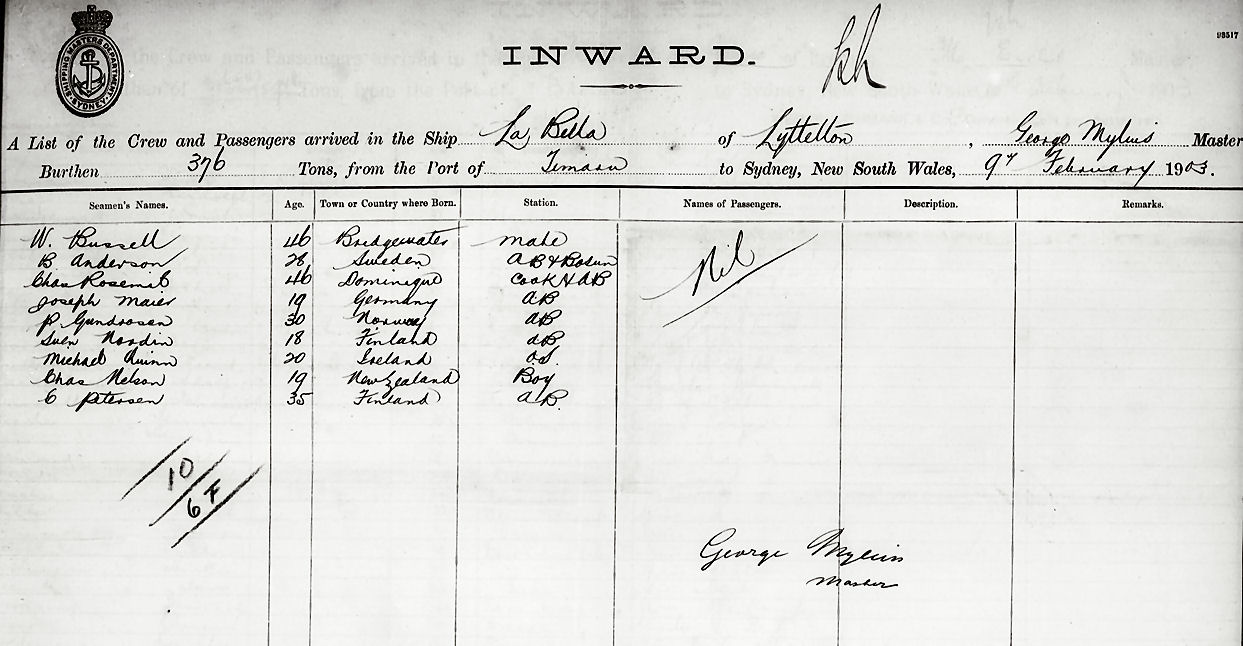 98517
INWARD.
SHIPPING MASTERS DEPARTMENT SYDNEY
A List of the Crew and Passengers arrived in the Ship La Bella of Lyttelton, George Mylius Master
Burthen 376 Tons, from the Port of Timaru to Sydney, New South Wales, 9th February 1903.
Seamen's Names. Age. Town or Country where Born. Station. Names of Passengers. Description. Remarks.
W. Bussell 46 Bridgewater mate Nil
B Anderson 28 Sweden AB & Bosun
Chas 46 Dominique Cook & AB
Joseph Maier 19 Germany AB
P Gundrosen 30 Norway AB
Sven Nordin 18 Finland AB
Michael Quinn 20 Ireland OS.
Chas Nelson 19 New Zealand Boy
C Petersen 35 Finland AB.
10
6 F
George Mylius
Master